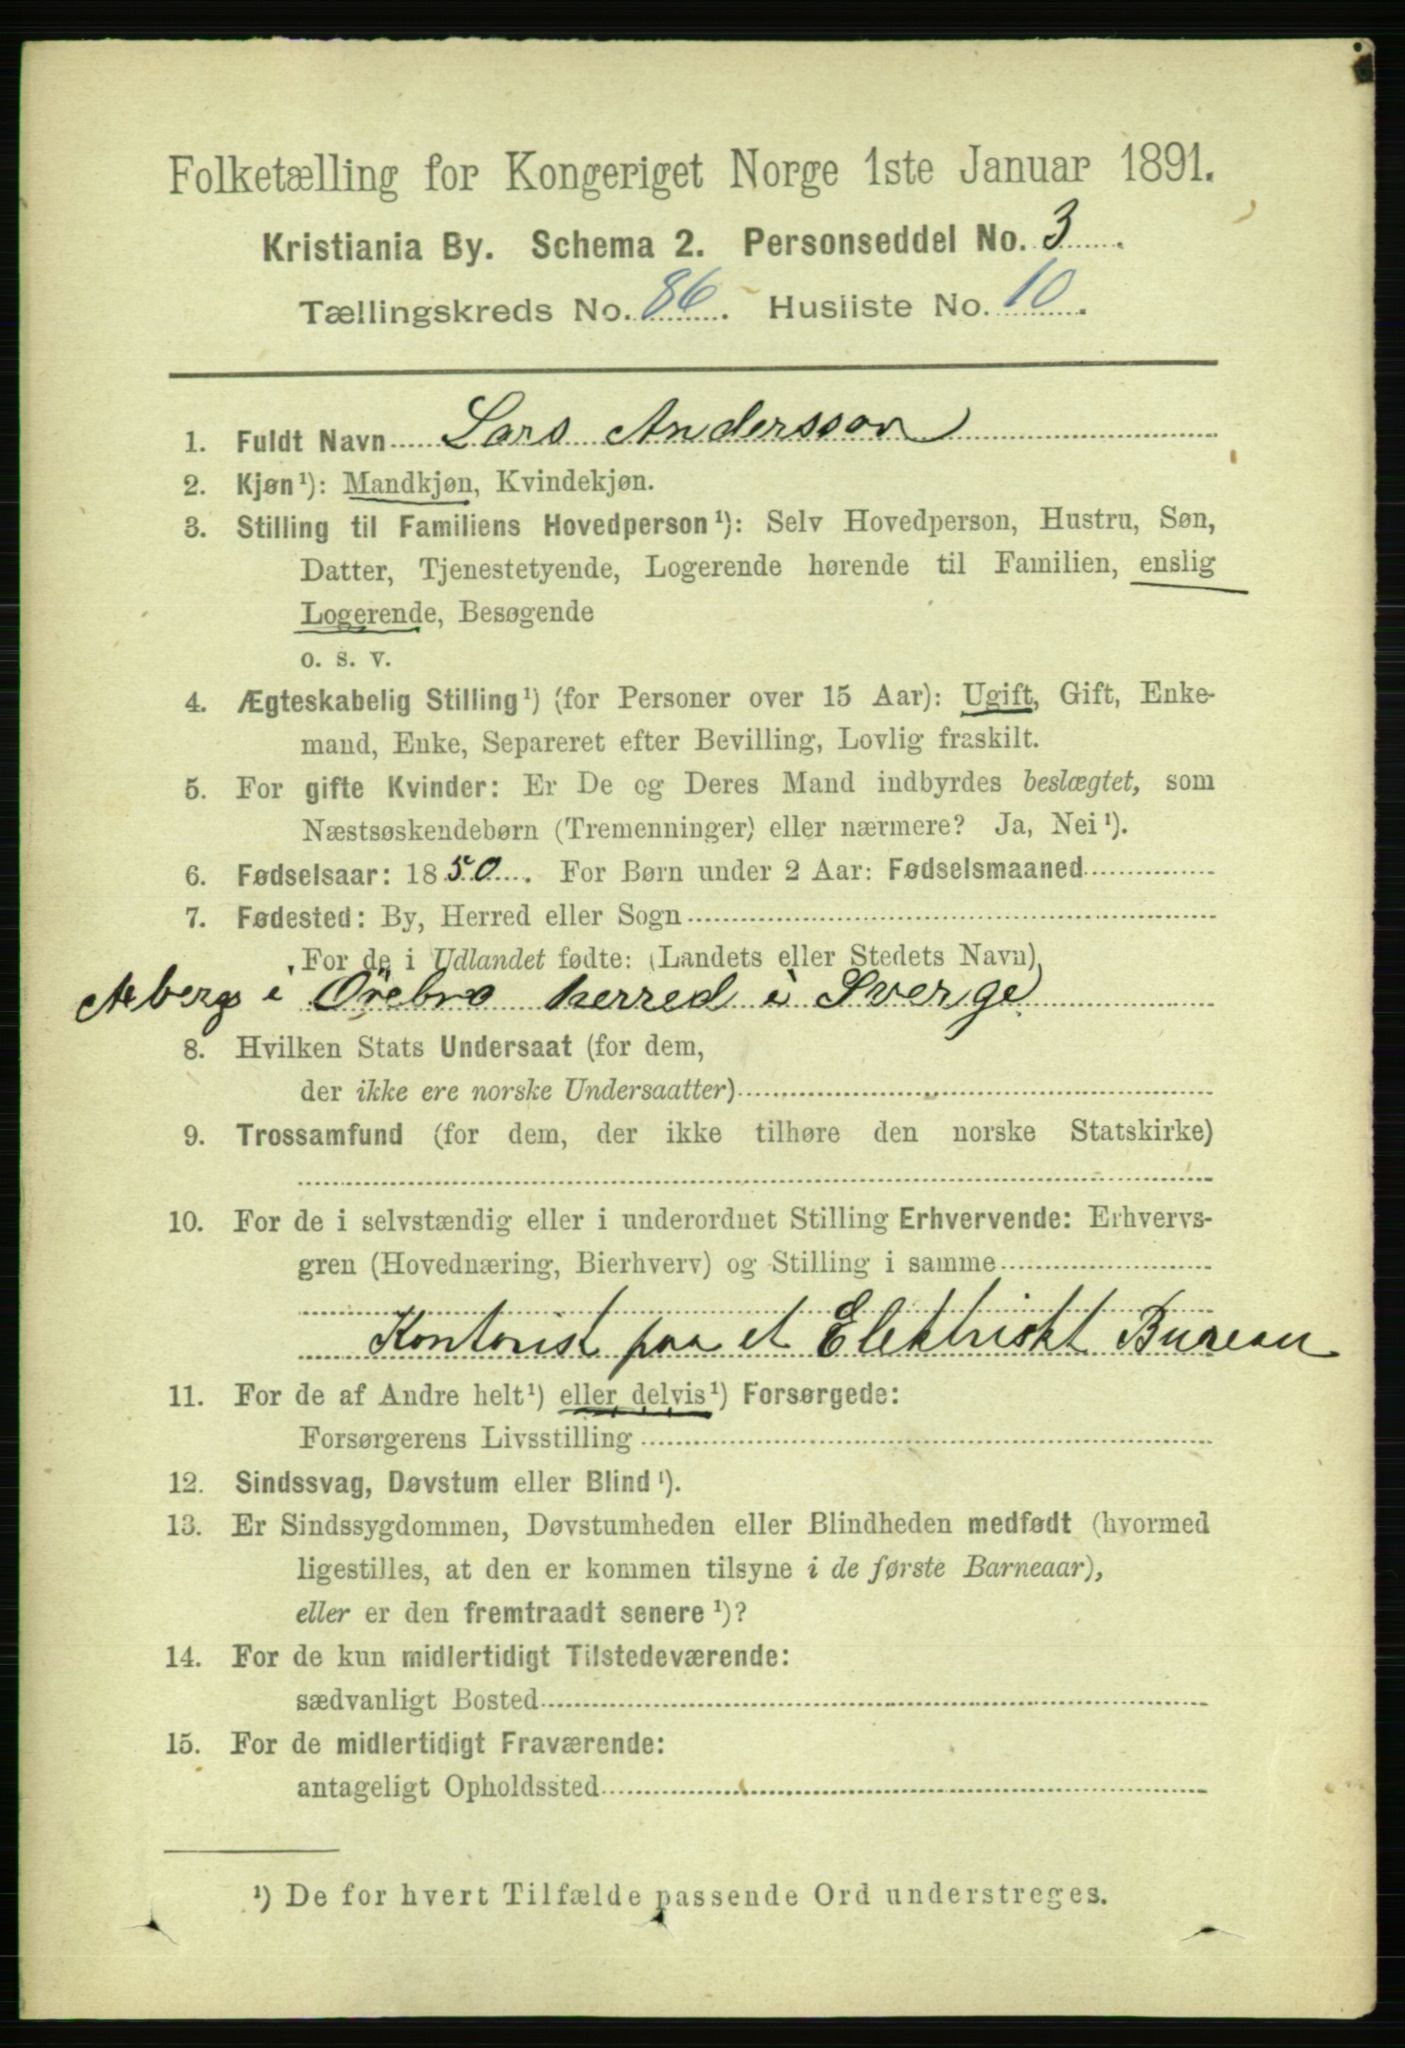 Folketælling for Kongeriget Norge 1ste Januar 1891.
Kristiania By. Schema 2. Personseddel No. 3.
Tællingskreds No. 86. Husliste No. 10.
1. Fuldt Navn Lars Andersson
2. Kjøn¹): Mandkjøn, Kvindekjøn.
3. Stilling til Familiens Hovedperson¹): Selv Hovedperson, Hustru, Søn,
Datter, Tjenestetyende, Logerende hørende til Familien, enslig
Logerende, Besøgende
o. s. v.
4. Ægteskabelig Stilling¹) (for Personer over 15 Aar): Ugift, Gift, Enke-
mand, Enke, Separeret efter Bevilling, Lovlig fraskilt.
5. For gifte Kvinder: Er De og Deres Mand indbyrdes beslægtet, som
Næstsøskendebørn (Tremenninger) eller nærmere? Ja, Nei¹).
6. Fødselsaar: 1850. For Børn under 2 Aar: Fødselsmaaned
7. Fødested: By, Herred eller Sogn
For de i Udlandet fødte: (Landets eller Stedets Navn)
i Örebro herred i Sverge
8. Hvilken Stats Undersaat (for dem,
der ikke ere norske Undersaatter)
9. Trossamfund (for dem, der ikke tilhøre den norske Statskirke)
10. For de i selvstændig eller i underordnet Stilling Erhvervende: Erhvervs-
gren (Hovednæring, Bierhverv) og Stilling i samme
Kontorist paa et Elektriskt Bureau
11. For de af Andre helt¹) eller delvis¹) Forsørgede:
Forsørgerens Livsstilling
12. Sindssvag, Døvstum eller Blind¹).
13. Er Sindssygdommen, Døvstumheden eller Blindheden medfødt (hvormed
ligestilles, at den er kommen tilsyne i de første Barneaar),
eller er den fremtraadt senere¹)?
14. For de kun midlertidigt Tilstedeværende:
sædvanligt Bosted
15. For de midlertidigt Fraværende:
antageligt Opholdssted
¹) De for hvert Tilfælde passende Ord understreges.